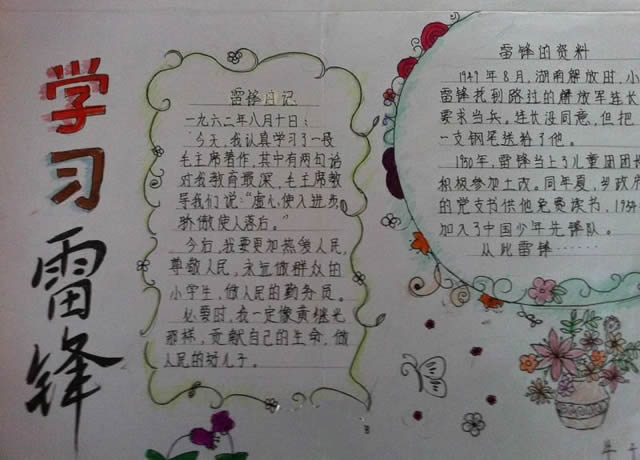 学习雷锋
雷锋日记
一九六二年八月十日：
今天，我认真学习了一段
毛主席著作，其中有两句话
对我教育最深，毛主席教
导我们说：“虚心使人进步
骄傲使人落后。”
今后，我要更加热爱人民，
尊敬人民，永远做群众的
小学生，做人民的勤务员。
必要时，我一定像黄继光
那样，贡献自己的生命，做
人民的好儿子。
雷锋的资料
1949年8月，湖南解放时，小
雷锋找到路过的解放军连长
要求当兵。连长没同意，但把
一支钢笔送给了他。
1950年，雷锋当上了儿童团团长
积极参加土改。同年夏，乡政府
的党支书供他免费读书，1954
加入了中国少年先锋队。
从此雷锋……